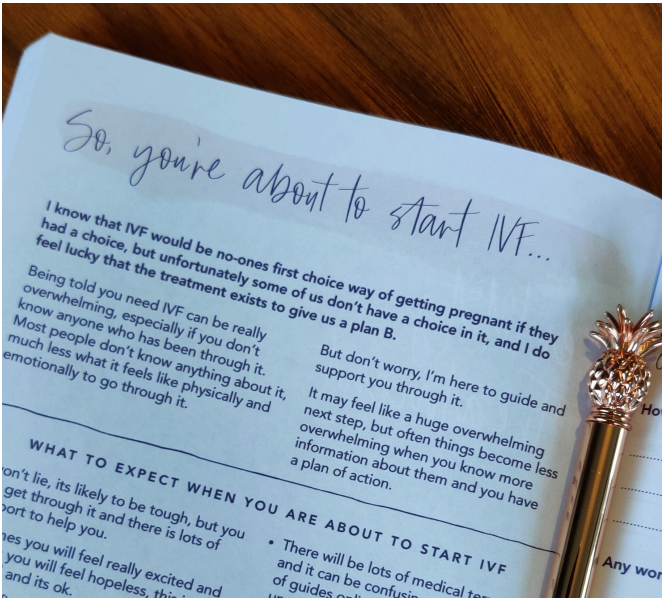 So, you're about to start IVF...
I know that IVF would be no-ones first choice way of getting pregnant if they
had a choice, but unfortunately some of us don't have a choice in it, and I do
feel lucky that the treatment exists to give us a plan B.
Being told you need IVF can be really
overwhelming, especially if you don't
know anyone who has been through it.
Most people don't know anything about it,
much less what it feels like physically and
emotionally to go through it.
But don't worry, I'm here to guide and
support you through it.
It may feel like a huge overwhelming
next step, but often things become less
overwhelming when you know more
information about them and you have
a plan of action.
WHAT TO EXPECT WHEN YOU ARE ABOUT TO START IVF
won't lie, its likely to be tough, but you
get through it and there is lots of
port to help you.
mes you will feel really excited and
you will feel hopeless, this i
and its ok.
• There will be lots of medical ter
and it can be confusin
of guides onli
How
Any wor